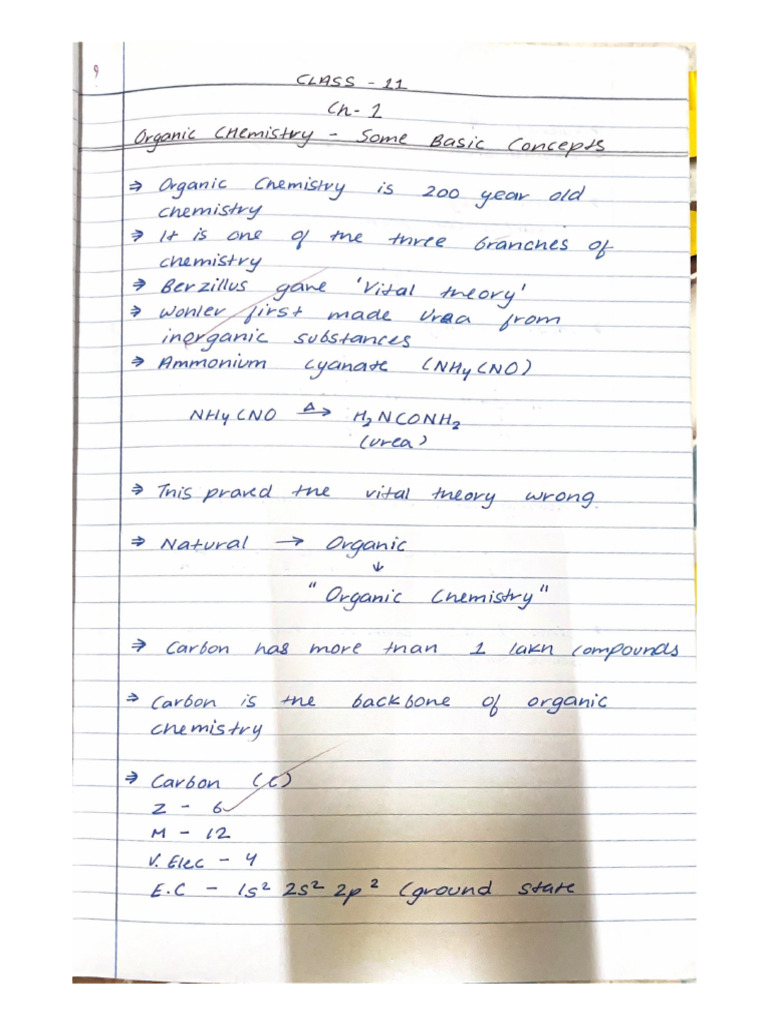 CLASS - 11
Ch - 1
Organic CHemistry - Some Basic Concepts
⇒ Organic Chemistry is 200 year old
chemistry
⇒ It is one of the three branches of
chemistry
⇒ Berzillus gave 'Vital theory'
⇒ Wohler first made Urea from
inorganic substances
⇒ Ammonium cyanate (NH4CNO)
NH4CNO Δ→ H2NCONH2
(Urea)
⇒ This proved the vital theory wrong
⇒ Natural → Organic
↓
"Organic Chemistry"
⇒ Carbon has more than 1 lakh compounds
⇒ Carbon is the backbone of organic
chemistry
⇒ Carbon (C)
Z - 6
M - 12
V. Elec - 4
E.C - 1s² 2s² 2p² (ground state